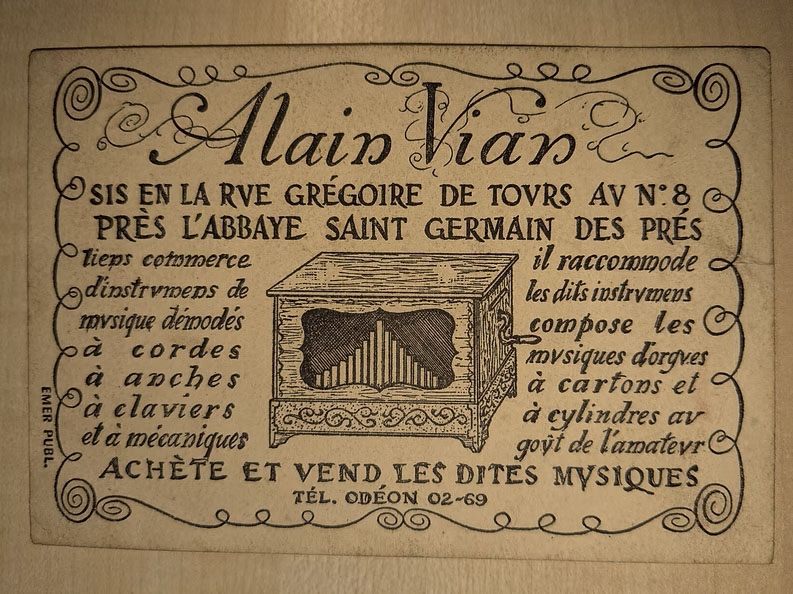 Alain Vian
SIS EN LA RVE GRÉGOIRE DE TOVRS AV N° 8
PRÈS L'ABBAYE SAINT GERMAIN DES PRÉS
tient commerce
d'instrvmens de
mvsique démodés
à cordes
à anches
à claviers
et à mécaniques
il raccommode
les dits instrvmens
compose les
mvsiques d'orgves
à cartons et
à cylindres av
goût de l'amatevr
ACHÈTE ET VEND LES DITES MVSIQUES
TÉL. ODÉON 02-69
EMER PUBL.